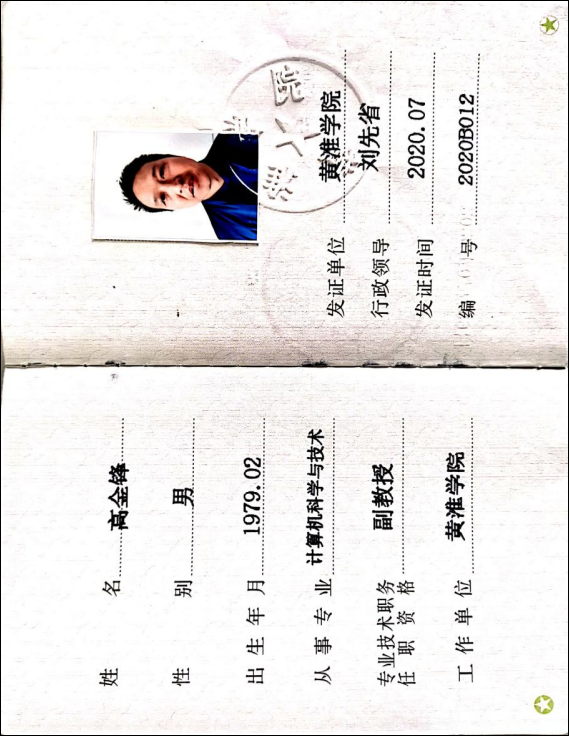 姓名 高金锋
性别 男
出生年月 1979.02
从事专业 计算机科学与技术
专业技术职务
任职资格 副教授
工作单位 黄淮学院
发证单位 黄淮学院
行政领导 刘先省
发证时间 2020.07
编号 2020B012